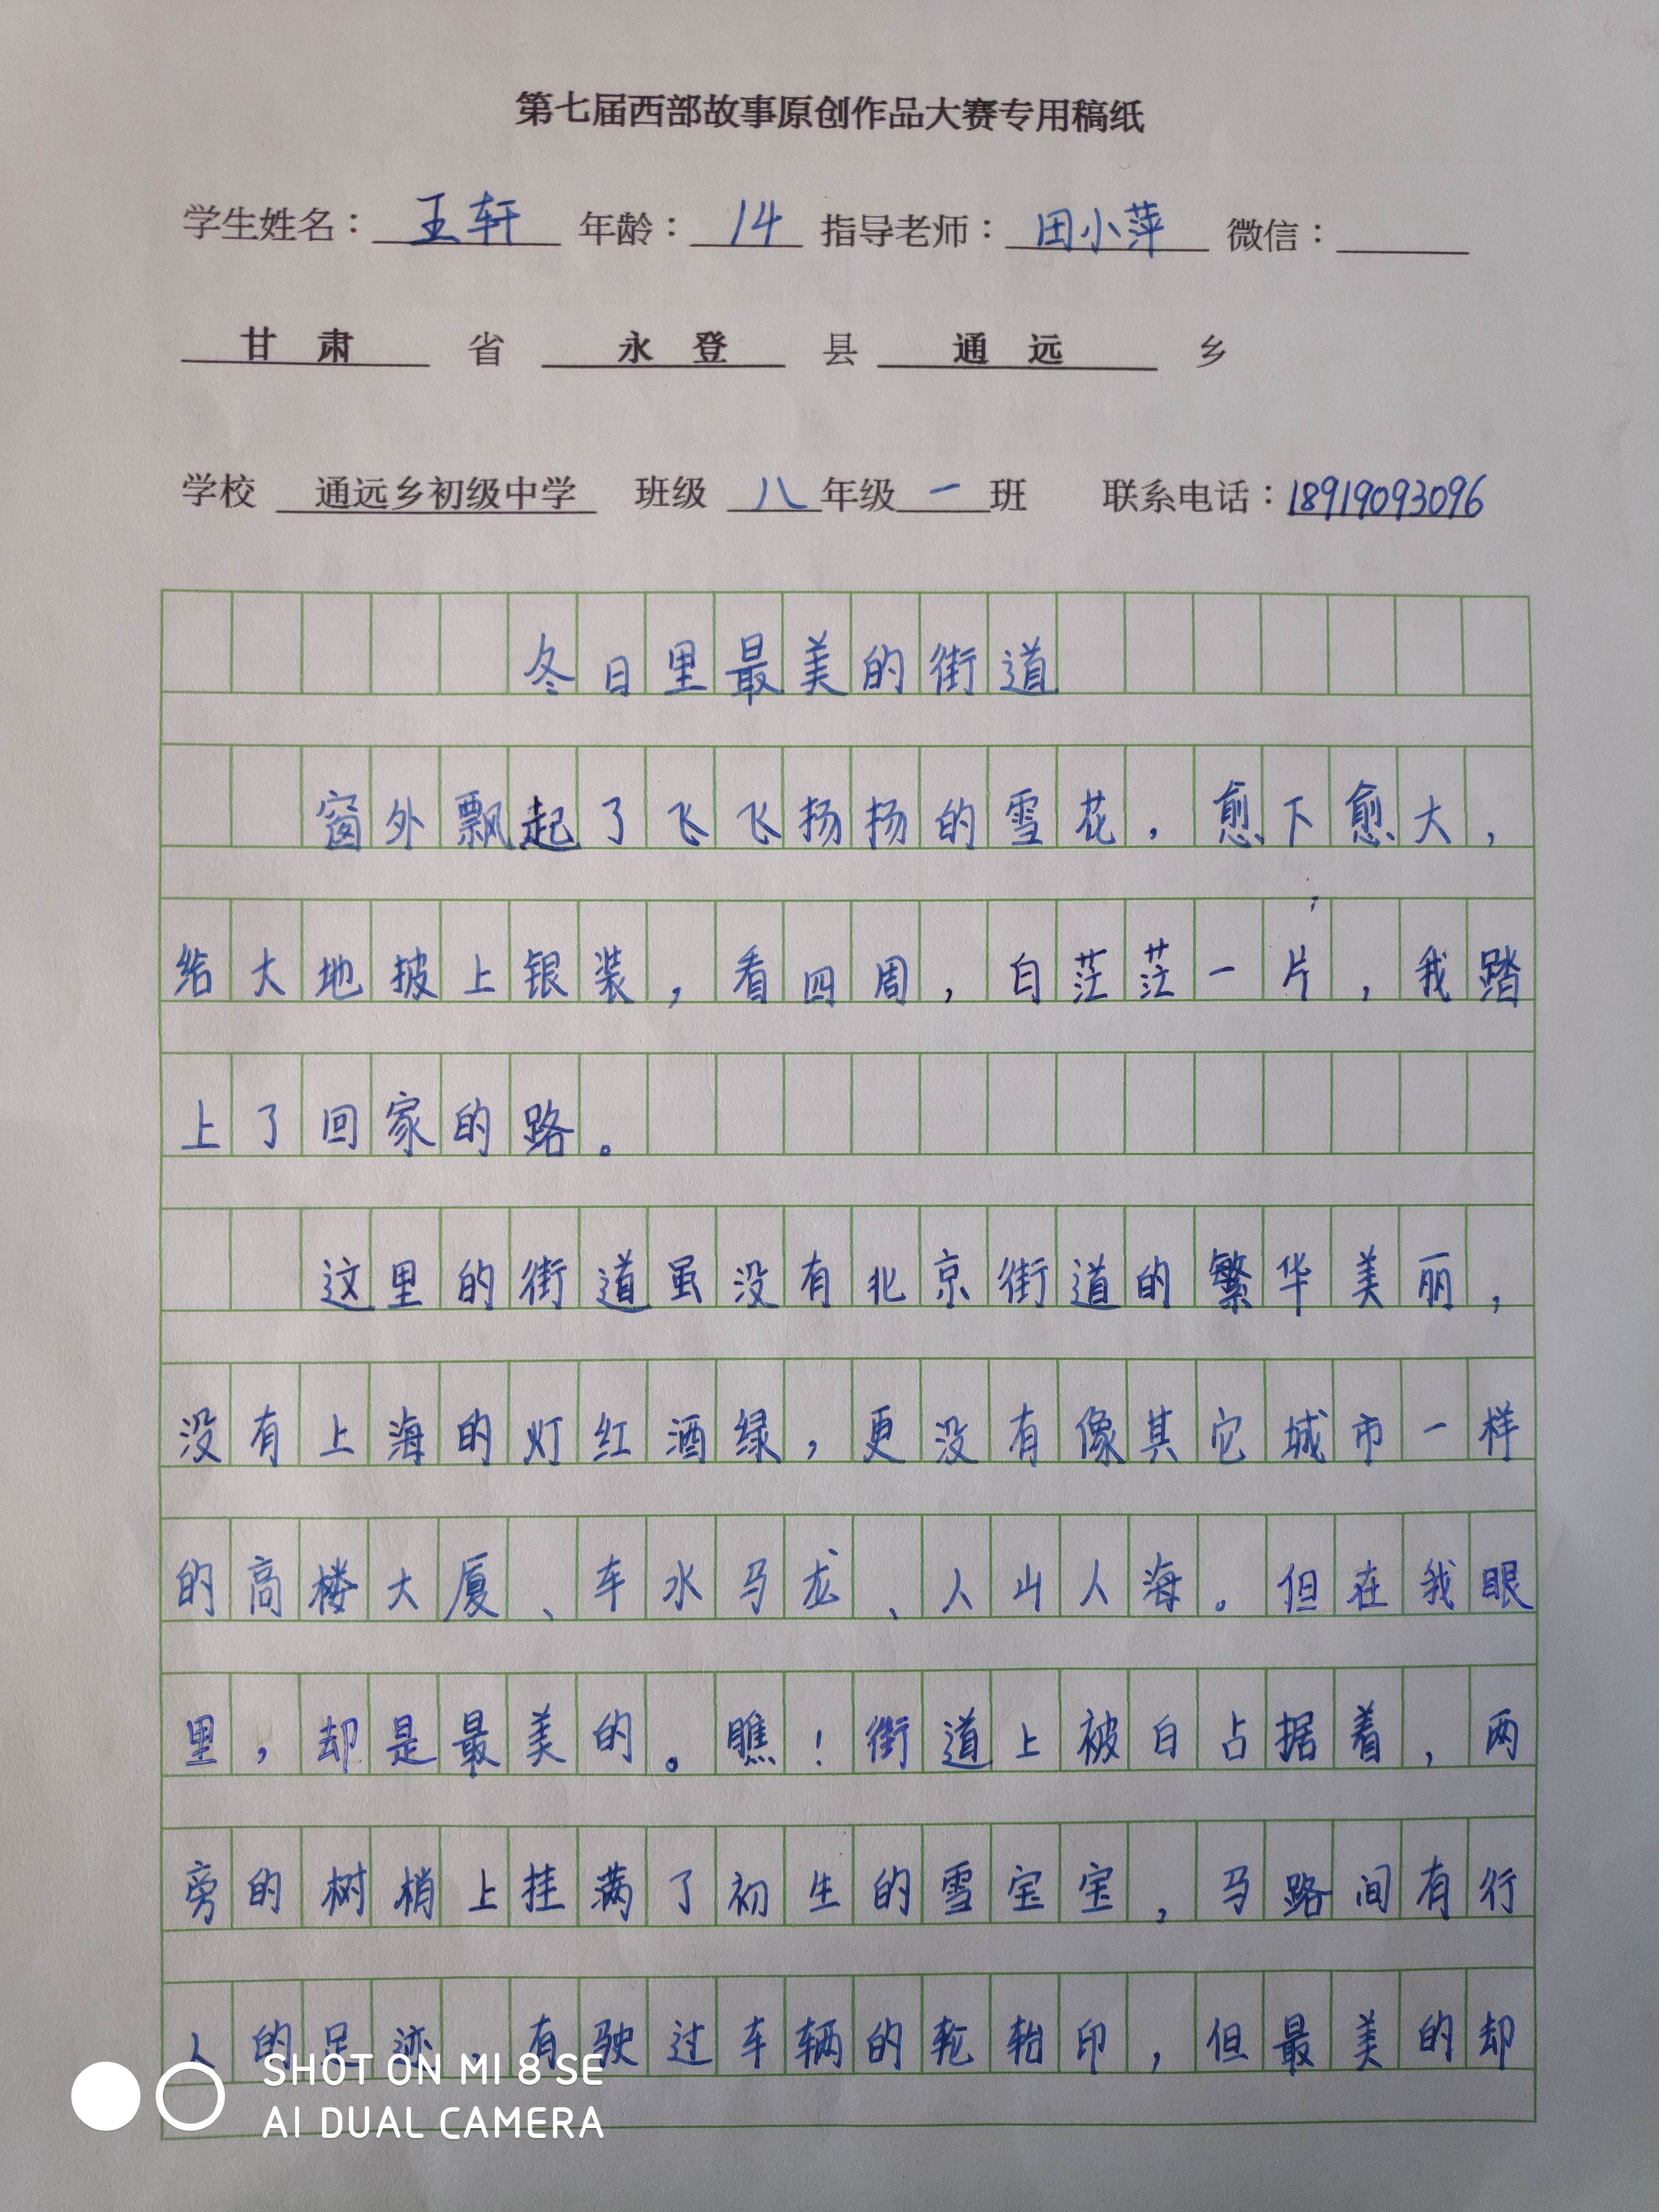 第七届西部故事原创作品大赛专用稿纸
学生姓名：王轩 年龄：14 指导老师：田小萍 微信：
甘肃 省 永登 县 通远 乡
学校 通远乡初级中学 班级 八年级一班 联系电话：18919093096
冬日里最美的街道
窗外飘起了飞飞扬扬的雪花，愈下愈大，
给大地披上银装，看四周，白茫茫一片，我踏
上了回家的路。
这里的街道虽没有北京街道的繁华美丽，
没有上海的灯红酒绿，更没有像其它城市一样
的高楼大厦、车水马龙、人山人海。但在我眼
里，却是最美的。瞧！街道上被白占据着，两
旁的树梢上挂满了初生的雪宝宝，马路间有行
人的足迹，有驶过车辆的轮胎印，但最美的却
SHOT ON MI 8 SE
AI DUAL CAMERA